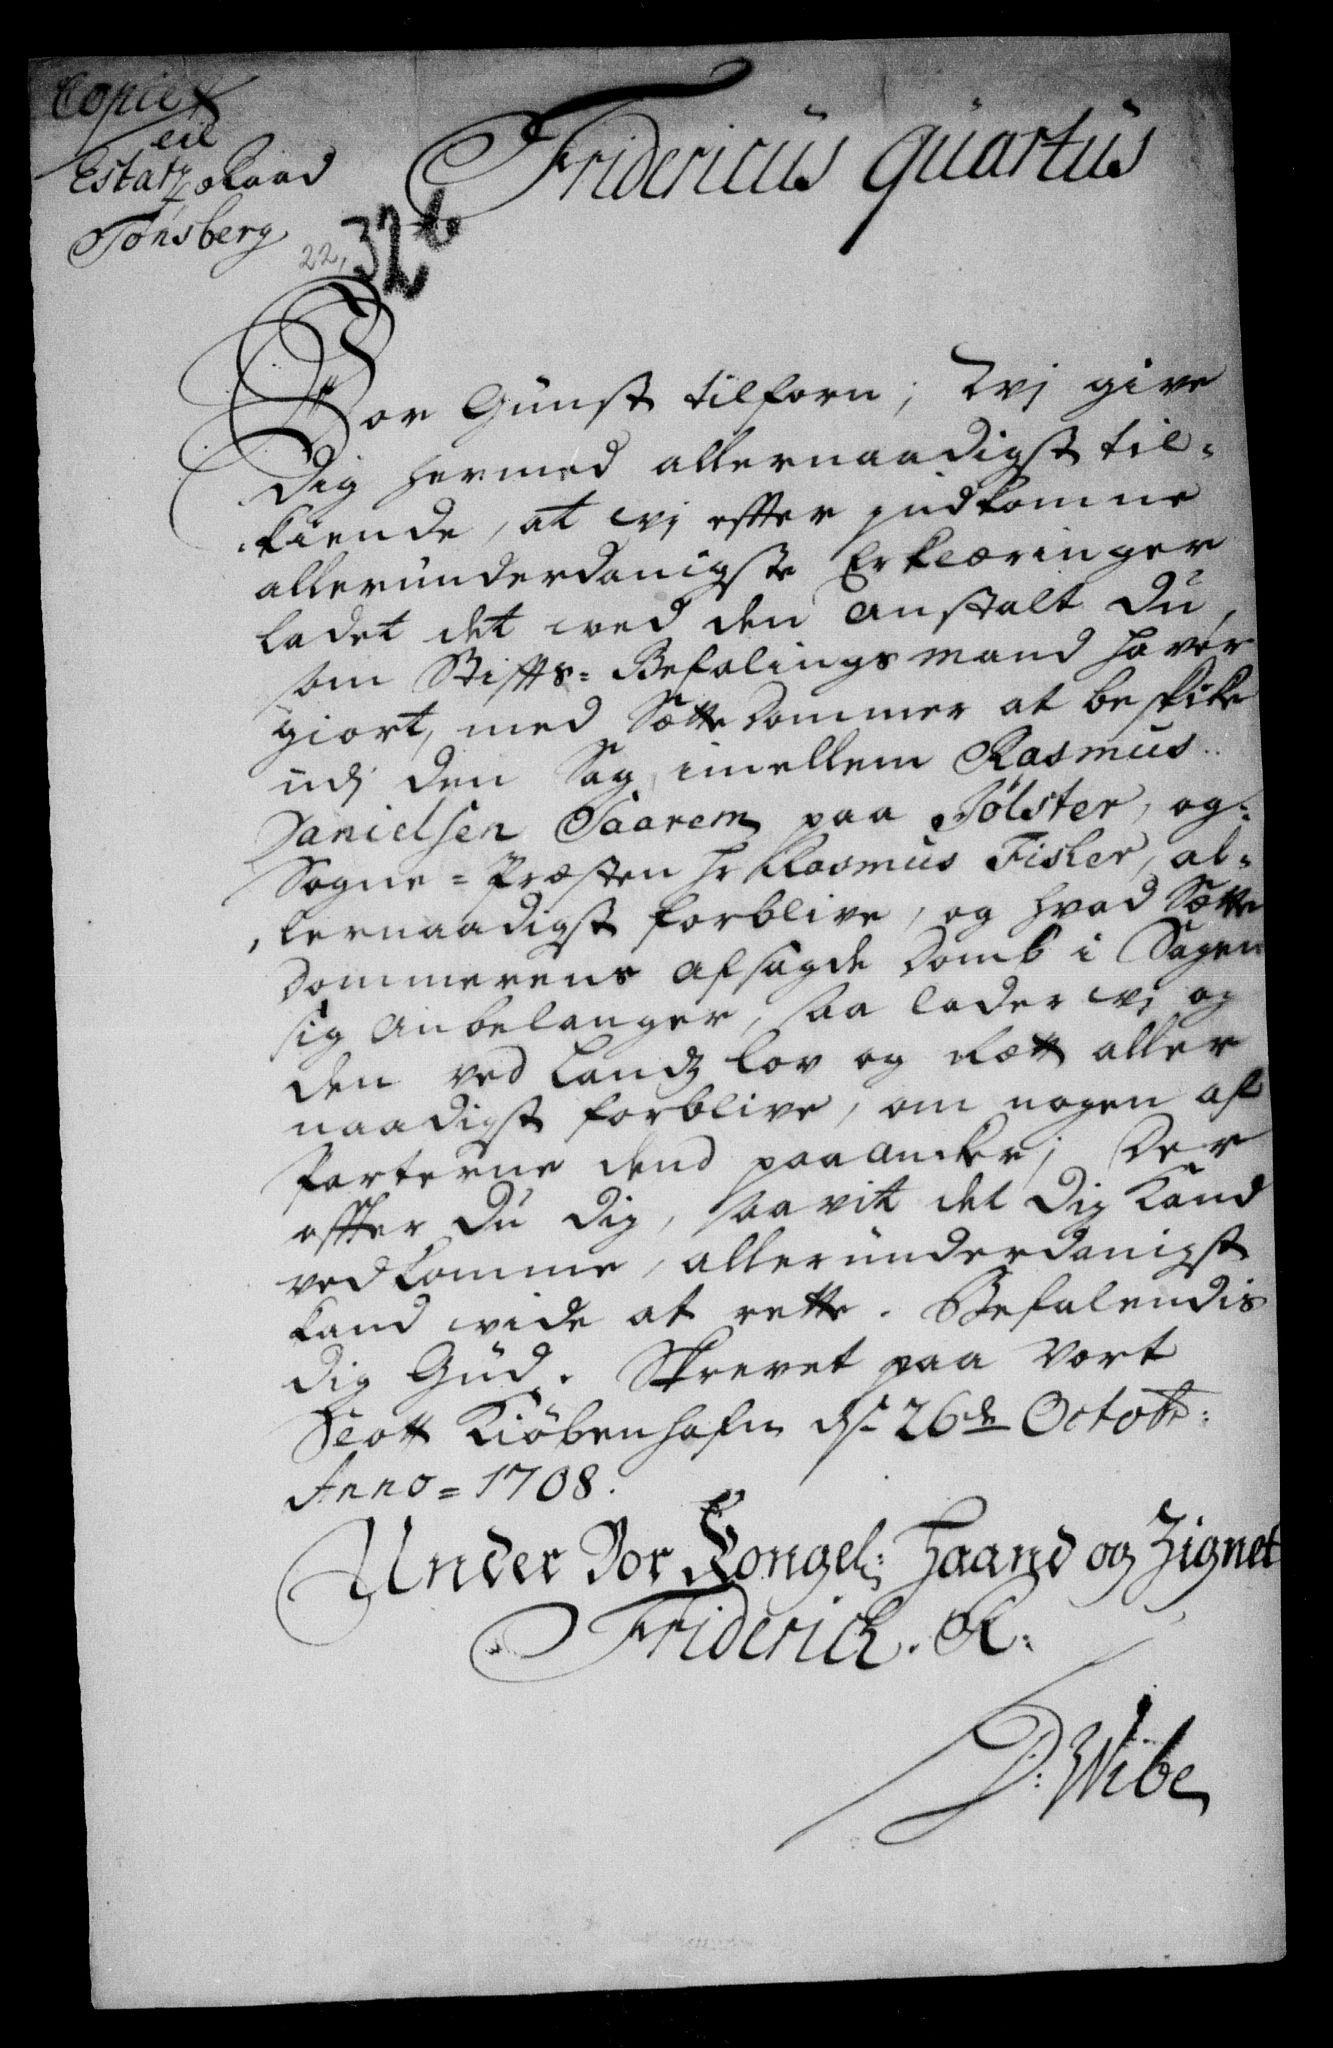 Copie
til
Estatz Raad
Tønsberg
22, 32 b
Fridericus Quartus
Vor Gunst tilforn; Wj give
Dig hermed allernaadigst til-
kiende, at wj effter indkomne
allerunderdanigste Erklæringer
ladet det wed den Anstalt Du,
som Stiffts-Befalingsmand haver
giort, med Sættedommer at beskike
udj den Sag imellem Rasmus
Danielsen Saarem paa Jølster, og
Sogne-Præsten Hr Rasmus Fisker, al-
lernaadigst forblive, og hvad Sætte
Dommerens afsagde Domb i Sagen
sig anbelanger, saa lader wj og
den ved Landz Lov og Rætt aller
naadigst forblive, om nogen af
Parterne dend paaancker; Der
effter Du Dig, saavit det Dig Kand
vedkomme, allerunderdanigst
kand wide at rette. Befalendis
Dig Gud. Skrevet paa Vort
Slott Kiöbenhafn d: 26de Octobr:
Anno = 1708.
Under Vor Kongel: Haand og Zignet
Friderich. R:
D: Wibe